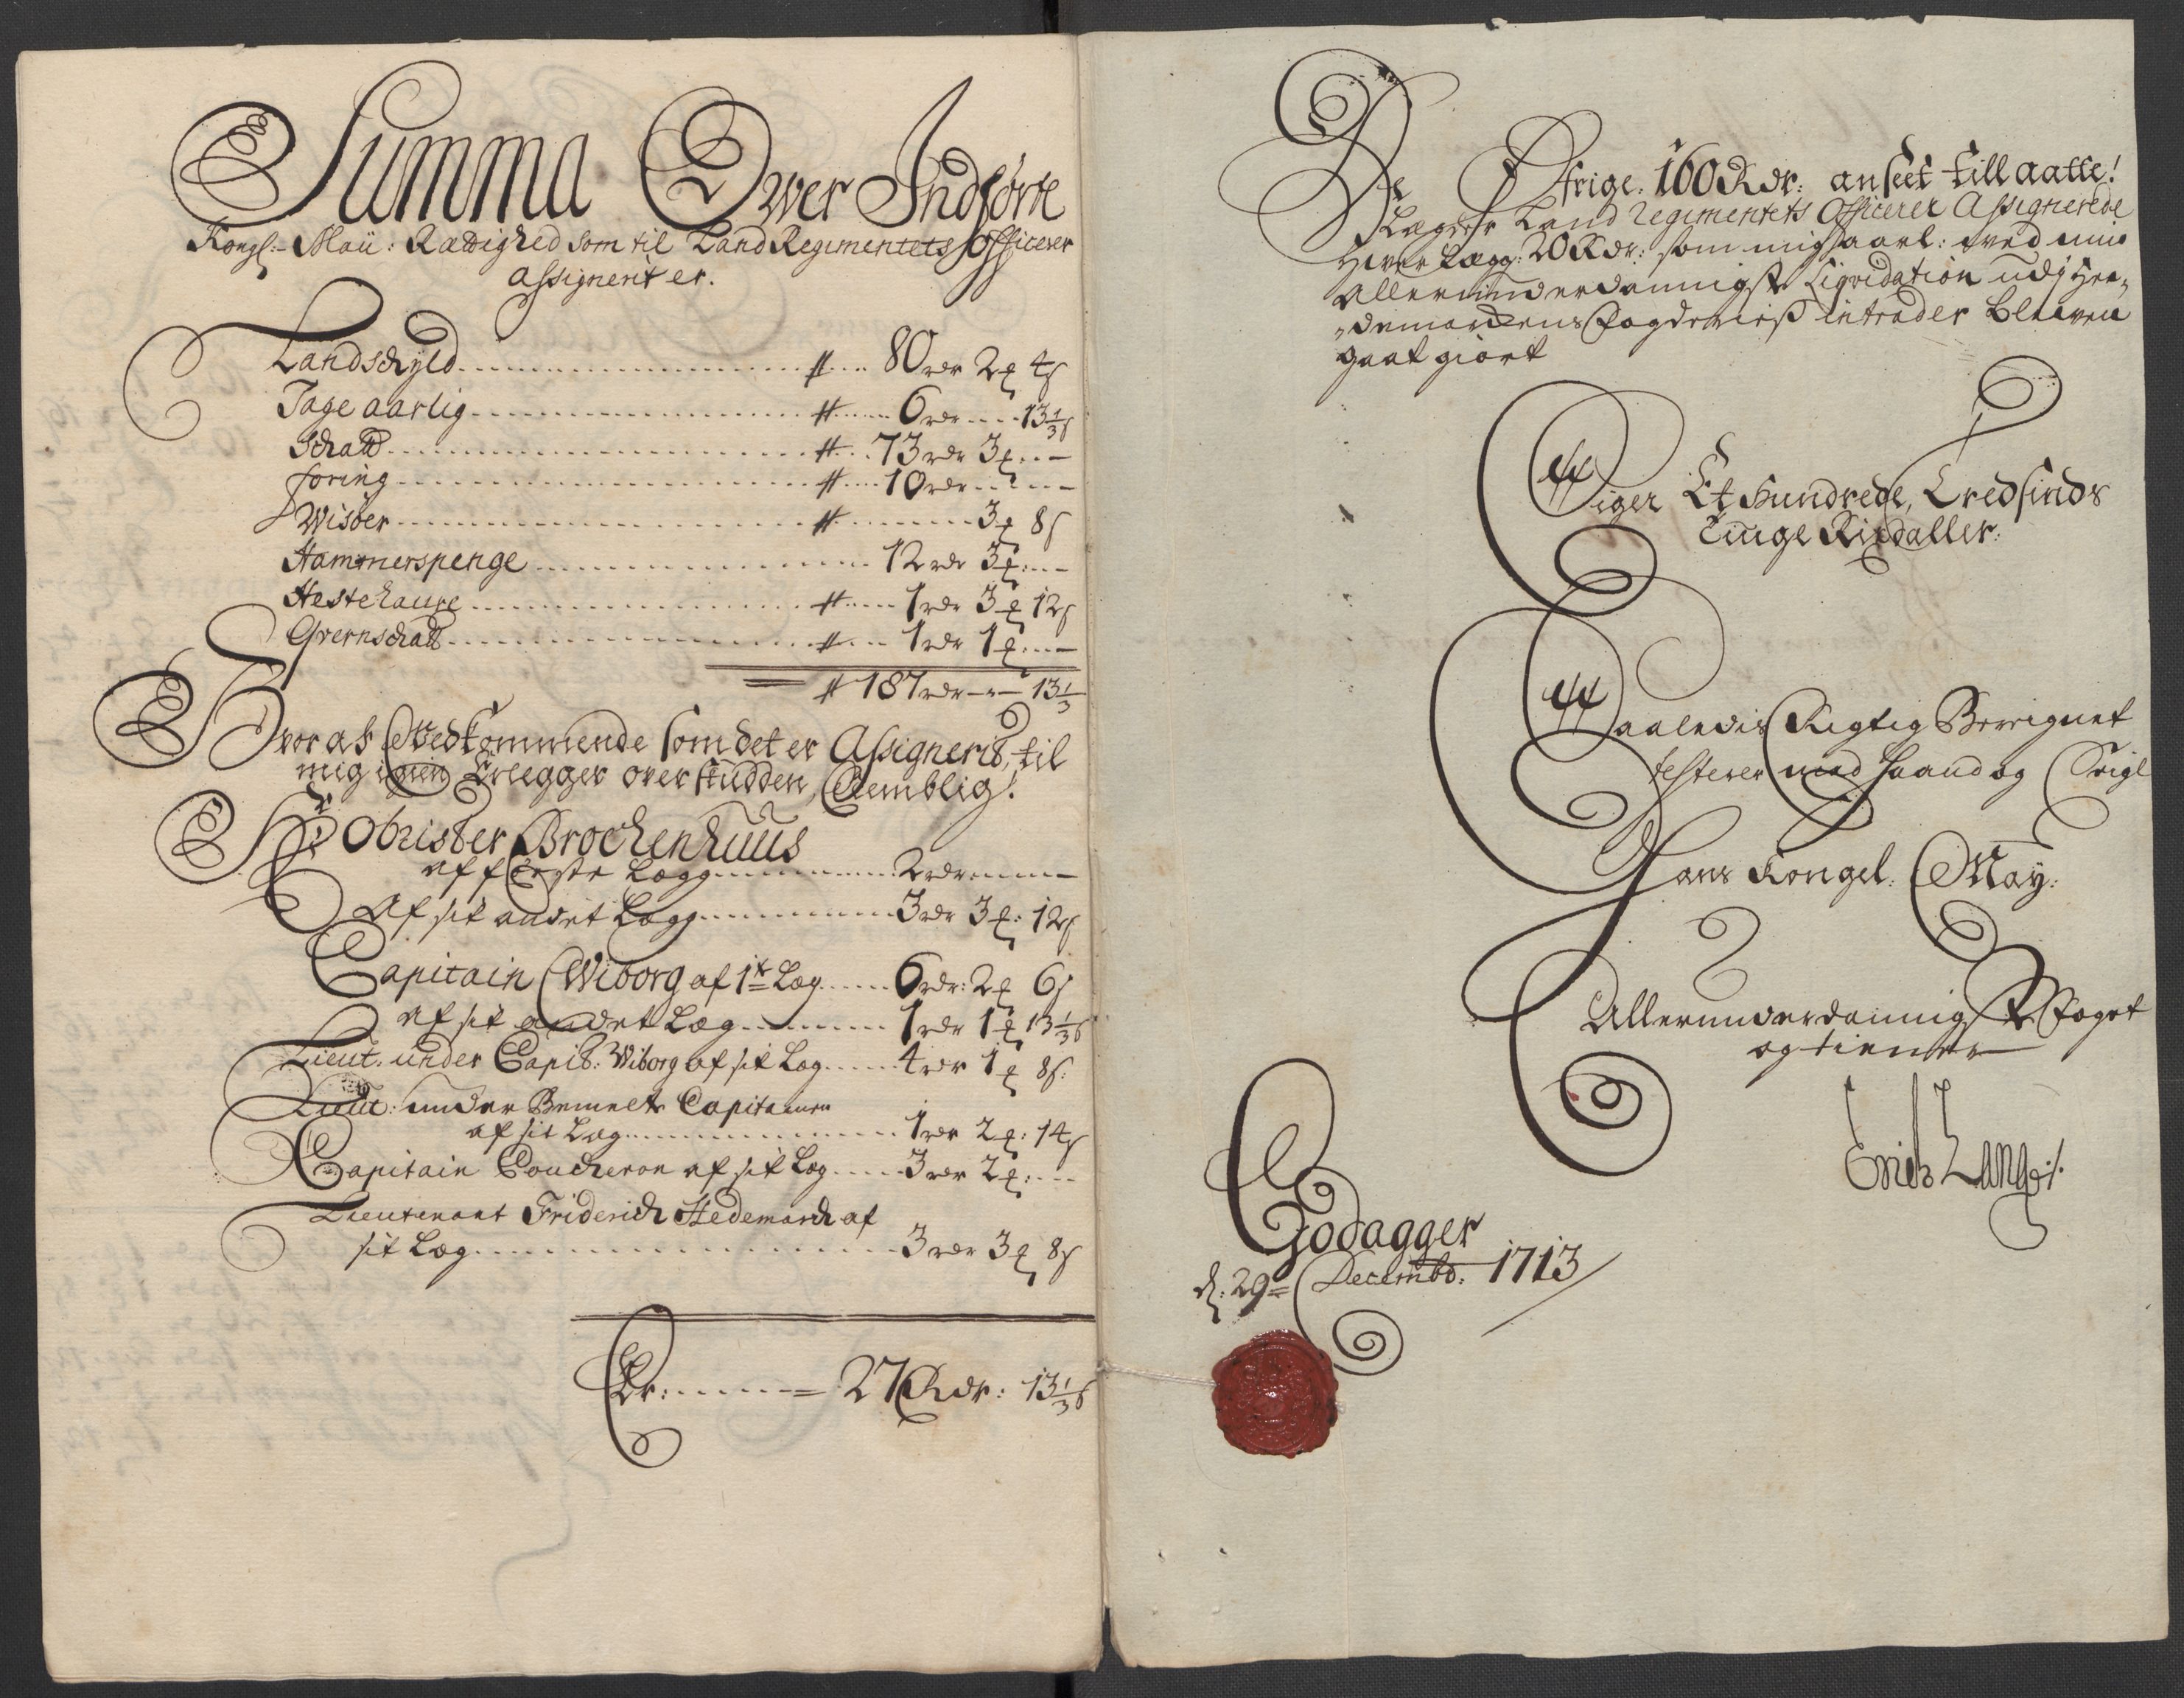 Summa Ower Indførte
Kongl:- Maÿ: Rættighed som til Land Regimentets Officerer
assignerit er.
Landschyld # 80 rdr 2 ₰ 4 s
Tage aarlig # 6 rdr 13 1/3 s
Schatt # 73 rdr 3 ₰
foring # 10 rdr
Wisøer # 3 ₰ 8 s
Hammerspenge 12 rdr 3 ₰
Hestehaufre # 1 rdr 3 ₰ 12 s
Qvernschatt # 1 rdr 1 ₰
# 187 rdr - 13 1/3
Hvor af Vedkommende som det er Assignerit, til
mig igien Erlegger overskudden, Nemblig!
Hr Obrister Brochenhuus
af første Lægg 2 rdr
Af sit andet Lægg 3 rdr 3 ₰: 12 s
Capitain Wiborg af 1te Læg 6 rdr: 2 ₰ 6 s
af sit andet Læg 1 rdr 1 ₰ 13 1/3 s
Lieut. under Capit: Wiborg af sit Læg 4 rdr 1 ₰ 8 s:
Lieut: under Bemelte Capitain
af sit Læg 1 rdr 2 ₰: 14 s
Capitain Coucheron af sit Læg 3 rdr 2 ₰:
Lieutenant Friderich Hedemarch af
sit Læg 3 rdr 3 ₰ 8 s
Er: = 27 Rdr: 13 1/3 s
De Øfrige 160 Rdr: anseet till aatte!
Lægder Land Regimentets Officerer Assignerede
Hver Lægg: 20 Rdr: som mig aarl: ved min
Allerunderdannigste Liqvidation udj Hee-
demarckens Fogderies intrader bleven
gaat giort
Siger Et Hundrede, Tredsinds
Tiuge Rixdaller:
Saaledis Rigtig Beregnet
testerer med Haand og Seigl
Hans Kongel: May:
Allerunderdannigste Foget
og tienere
Erich Lange
Godagger
d: 29 Decembr: 1713